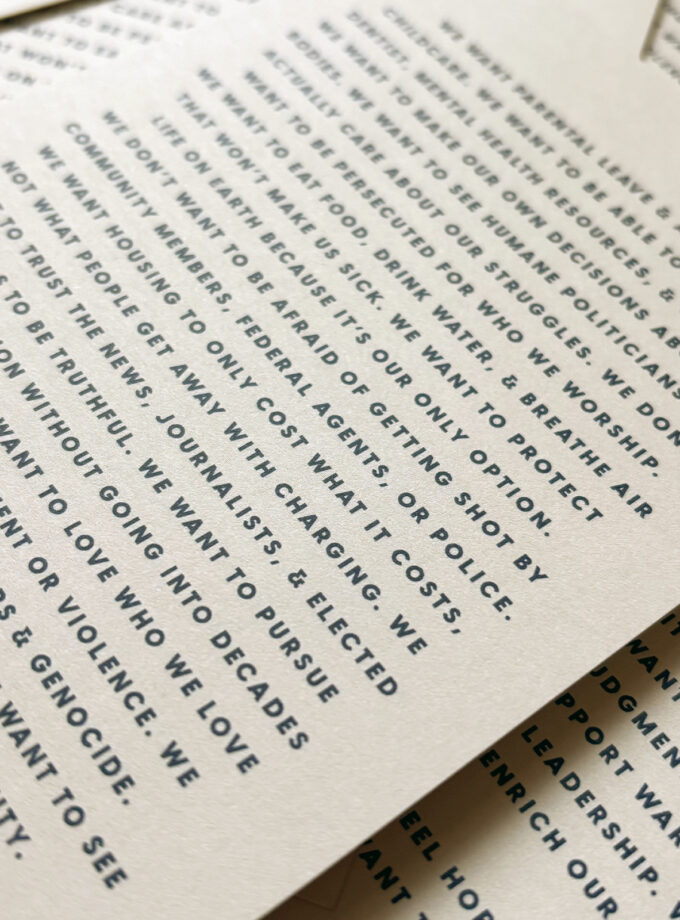 WE WANT PARENTAL LEAVE &
CHILDCARE. WE WANT TO BE ABLE TO
DENTIST, MENTAL HEALTH RESOURCES, &
WE WANT TO MAKE OUR OWN DECISIONS ABO
BODIES. WE WANT TO SEE HUMANE POLITICIANS
ACTUALLY CARE ABOUT OUR STRUGGLES. WE DON
WANT TO BE PERSECUTED FOR WHO WE WORSHIP.
WE WANT TO EAT FOOD, DRINK WATER, & BREATHE AIR
THAT WON'T MAKE US SICK. WE WANT TO PROTECT
LIFE ON EARTH BECAUSE IT'S OUR ONLY OPTION.
WE DON'T WANT TO BE AFRAID OF GETTING SHOT BY
COMMUNITY MEMBERS, FEDERAL AGENTS, OR POLICE.
WE WANT HOUSING TO ONLY COST WHAT IT COSTS,
NOT WHAT PEOPLE GET AWAY WITH CHARGING. WE
TO TRUST THE NEWS, JOURNALISTS, & ELECTED
TO BE TRUTHFUL. WE WANT TO PURSUE
ION WITHOUT GOING INTO DECADES
WANT TO LOVE WHO WE LOVE
ENT OR VIOLENCE. WE
& GENOCIDE.
WANT TO SEE
TY.
IT
WANT
UDGMEN
PPORT WAR
LEADERSHIP.
ENRICH OUR
EEL HOP
ANT